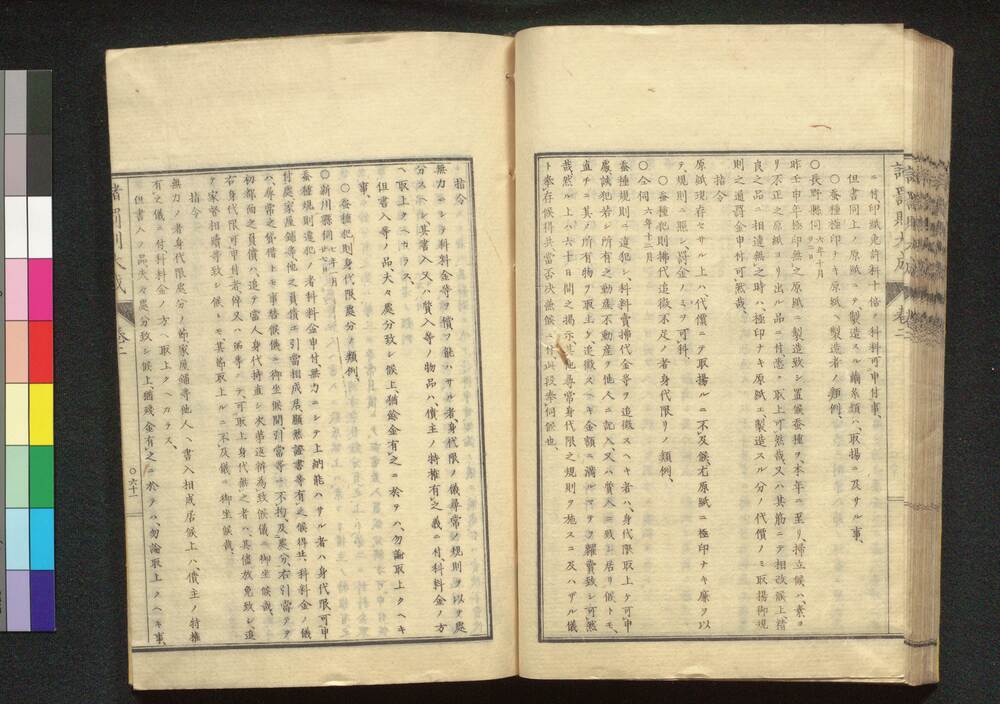 ニ付印紙免許料十倍ノ科料可申付事、
但書同上ノ原紙ニテ製造スル繭糸類ハ、取揚ニ及サル事、
○蚕種極印トキ原紙ヘ製造者ノ類例、
○長野縣伺 六年十月 日
昨壬申年極印無之原紙ニ製造致シ置候蚕種ヲ、本年ニ至リ、掃立候ハ、素ヨ
リ不正之原紙ヨリ出ル品ニ付、悉ク取上可然哉、又ハ其筋ニテ相改候上、精
良之品ニ相違無之時ハ、極印ナキ原紙エ、製造スル分ノ代價ノミ取揚、御規
則之通罰金申付可然哉、
指令
原紙現存セサル上ハ、代價ニテ取揚ルニ不及候尤原紙ニ極印ナキ廉ヲ以
テ規則ニ照シ、罰金ノミヲ可科
○蚕種犯則拂代追徴不足ノ者身代限リノ類例、
○仝伺 六年十二月
蚕種規則ニ違犯シ、科料賣拂代金等ヲ追徴スヘキ者ハ、身代限取上ケ可申
處、該犯若シ所有之動産不動産ヲ他人ニ書入又ハ質入ニ致シ居リ候トモ、
直チニ其ノ所有物ヲ取上ケ、追徴スヘキ金額ニ満ルマテヲ糶賣致シ可然
哉、然ル上ハ六十日間之掲示其他尋常身代限之規則ヲ施スニ及ハサル儀
ト奉存候得共、當否決兼候ニ付、此段奉伺候也、
指令
無力ニシテ科料金等ヲ償フ能ハサル者、身代限ノ儀尋常ノ規則ヲ以テ處
分スヘシ、其書入又ハ質入等ノ物品ハ、債主ノ特權有之義ニ付、科料金ノ方
ヘ取上クヘカラス、
但書入等ノ品夫々處分致シ候上、猶餘金有之ニ於テハ、勿論取上クヘキ
事、
○蚕種犯則身代限處分ノ類例、
○新川縣伺 七年一月
蚕種規則違犯ノ者科料金申付、無力ニシテ上納能ハサル者ハ、身代限可申
付處、家屋鋪等他之負債ニ引當相成居、顯然證書等有之候得共、科料金ノ儀
ハ、尋常之貸借トモ事替候儀ニ御坐候間、引當等ニ不拘、及處分、右引當テヲ
初都而之負債ハ、追テ當人身代持直シ次第返辨為致候儀ニ御坐候哉、
右身代限可申付者、倅又ハ弟等ニテ、可取上身代無之者ハ、其儘放免致シ、追
テ家督相續等致シ候トモ、其節取上ルニ不及儀ニ御坐候哉、
指令
無力ノ者身代限處分ノ節、家屋鋪等他人ヘ書入相成居候上ハ、債主ノ特權
有之儀ニ付、科料金ノ方ヘ取上クヘカラス、
但書入ノ品夫々處分致シ候上、猶殘金有之ニ於テハ、勿論取上クヘキ事、
○六十一